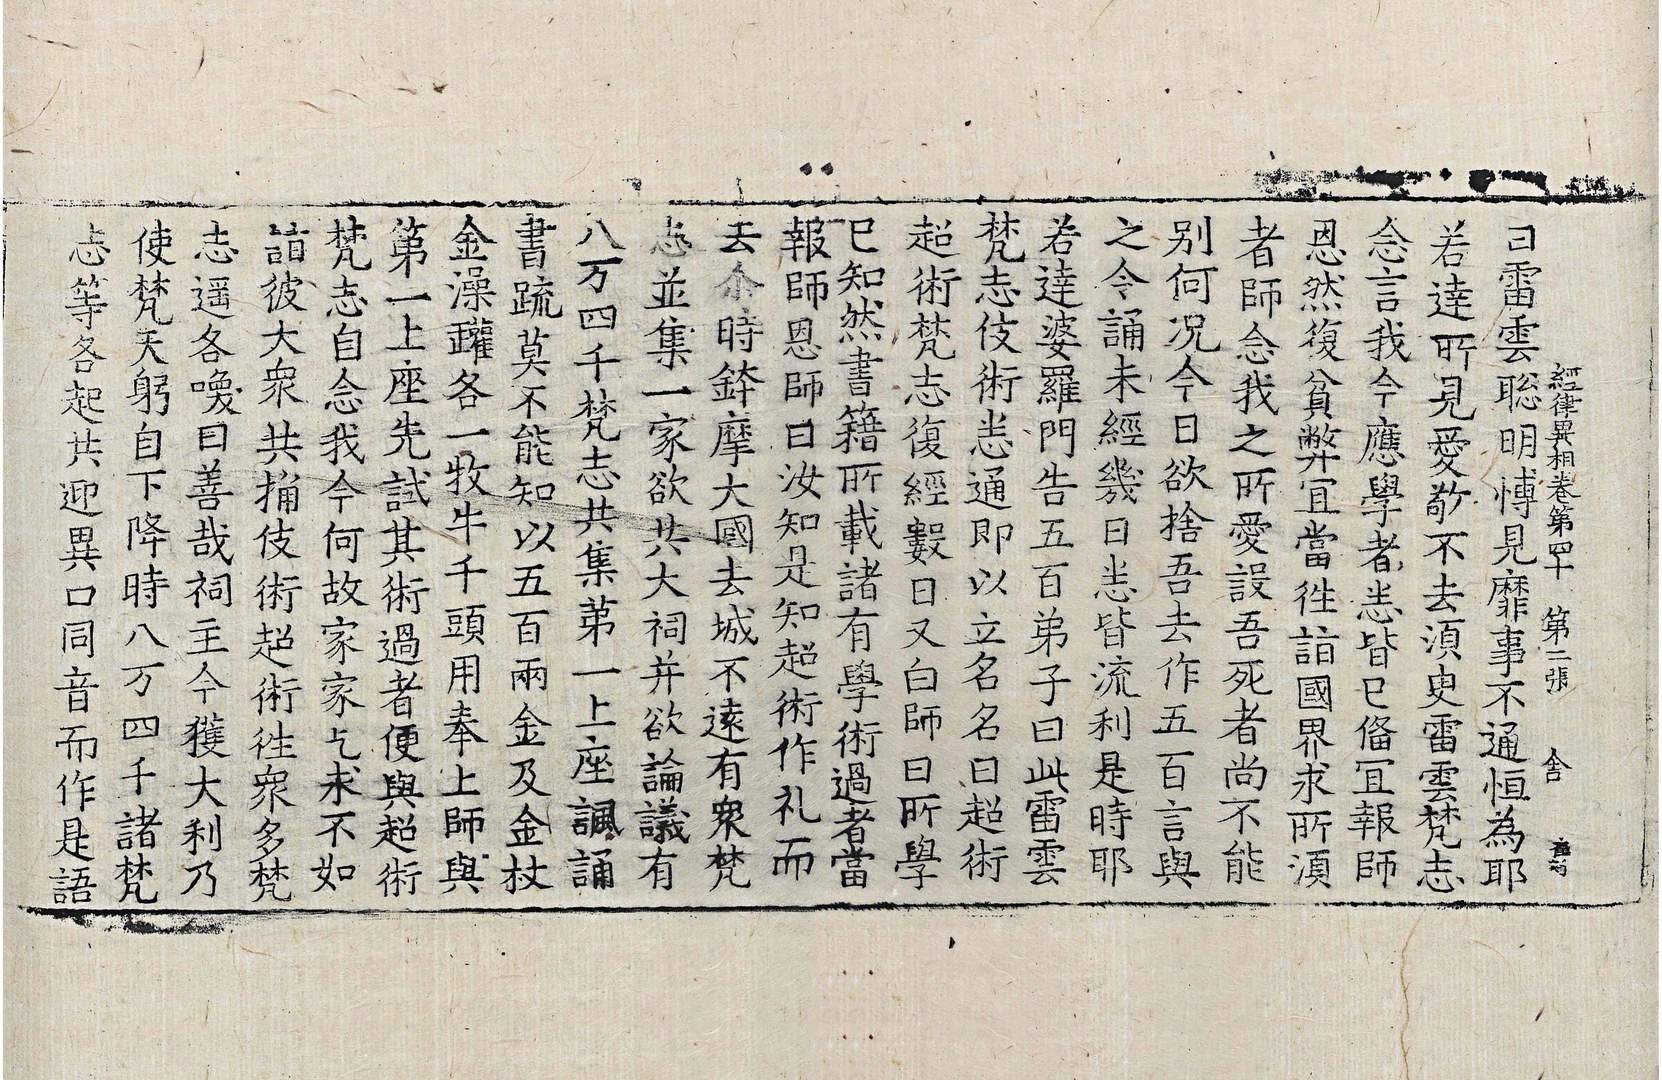 經律異相卷第四十 第二張 舍
曰雷雲聡明愽見靡事不通恒為耶
若達所見愛敬不去湏臾雷雲梵志
念言我今應學者悉皆已俻冝報師
恩然復貧弊冝當徃詣國界求所湏
者師念我之所愛設吾死者尚不能
别何况今日欲捨吾去作五百言與
之令誦未經幾日悉皆流利是時耶
若達婆羅門告五百弟子曰此雷雲
梵志伎術悉通即以立名名曰超術
超術梵志復經數日又白師曰所學
已知然書籍所載諸有學術過者當
報師恩師曰汝知是知超術作礼而
去尒時鉢摩大國去城不遠有衆梵
志並集一家欲共大祠并欲論議有
八万四千梵志共集苐一上座諷誦
書䟽莫不能知以五百兩金及金杖
金澡罐各一牧牛千頭用奉上師與
第一上座先試其術過者便與超術
梵志自念我今何故家家乞求不如
詣彼大衆共捔伎術超術徃衆多梵
志遥各喚曰善哉祠主今獲大利乃
使梵天躬自下降時八万四千諸梵
志等各起共迎異口同音而作是語